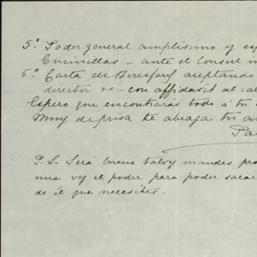 5.º Poder general amplísimo y esp
Encinillas - ante el Consul m
6.º Carta de Beresford aceptando
director de - con affidavit al cal
Espero que encontrarás todo á tu
Muy de prisa te abraza tu
Pa
P.S. Será bueno todos mandes pro
una vez el poder para poder sacar
de él que necesites.